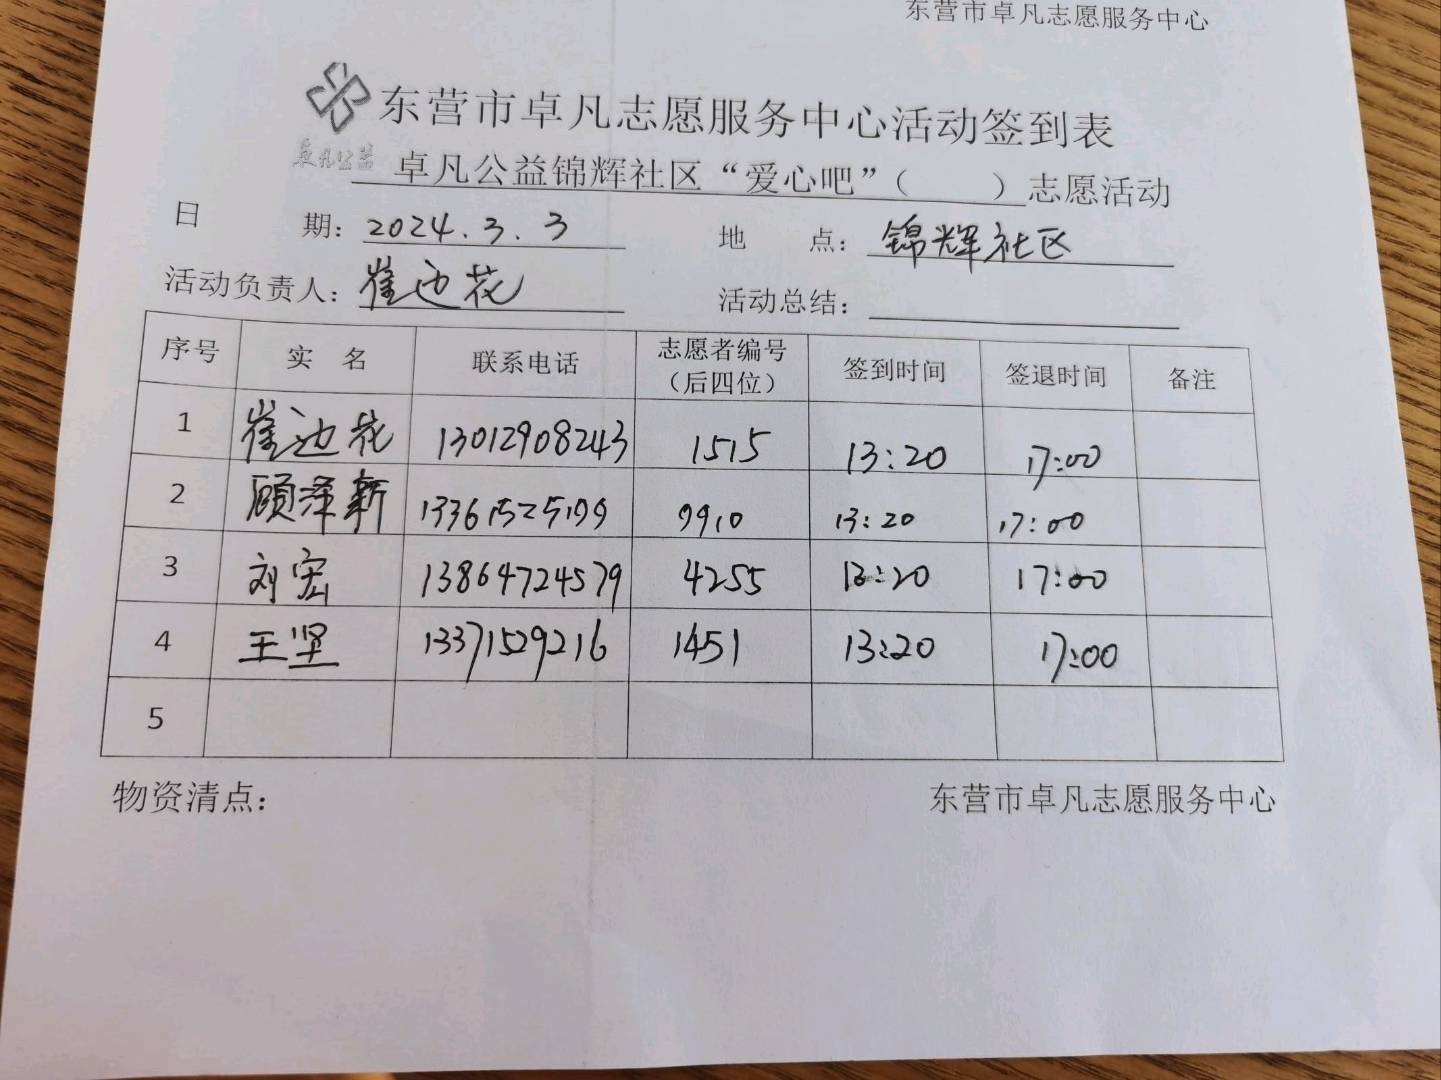 东营市卓凡志愿服务中心
东营市卓凡志愿服务中心活动签到表
卓凡公益
卓凡公益锦辉社区“爱心吧”(    )志愿活动
日 期：2024.3.3 地 点：锦辉社区
活动负责人：崔迎花 活动总结：
序号 实 名 联系电话 志愿者编号（后四位） 签到时间 签退时间 备注
1 崔迎花 13012908243 1515 13:20 17:00
2 顾泽新 13361525199 9910 13:20 17:00
3 刘宏 13864724579 4255 13:20 17:00
4 王坚 13371529216 1451 13:20 17:00
5
物资清点： 东营市卓凡志愿服务中心